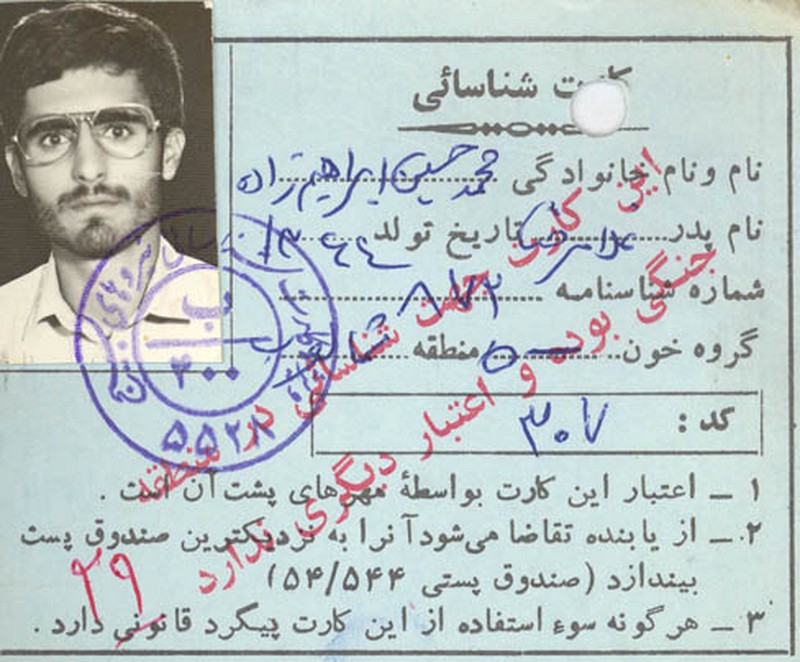 کارت شناسائی
نام و نام خانوادگی محمد حسین ابراهیم زاده
نام پدر غلامرضا تاریخ تولد ۱۳۴۴
شماره شناسنامه ۸۷۲
گروه خون منطقه شمال
کد : ۳۰۷
۱ – اعتبار این کارت بواسطهٔ مهرهای پشت آن است .
۲ – از یابنده تقاضا می‌شود آنرا به نزدیکترین صندوق پست
بیندازد (صندوق پستی ۵۴/۵۴۴)
۳ – هرگونه سوء استفاده از این کارت پیگرد قانونی دارد .
این کارت جهت شناسائی در منطقه
جنگی بوده و اعتبار دیگری ندارد
۲۹
ب
۴۰۰
۵۵۲۸